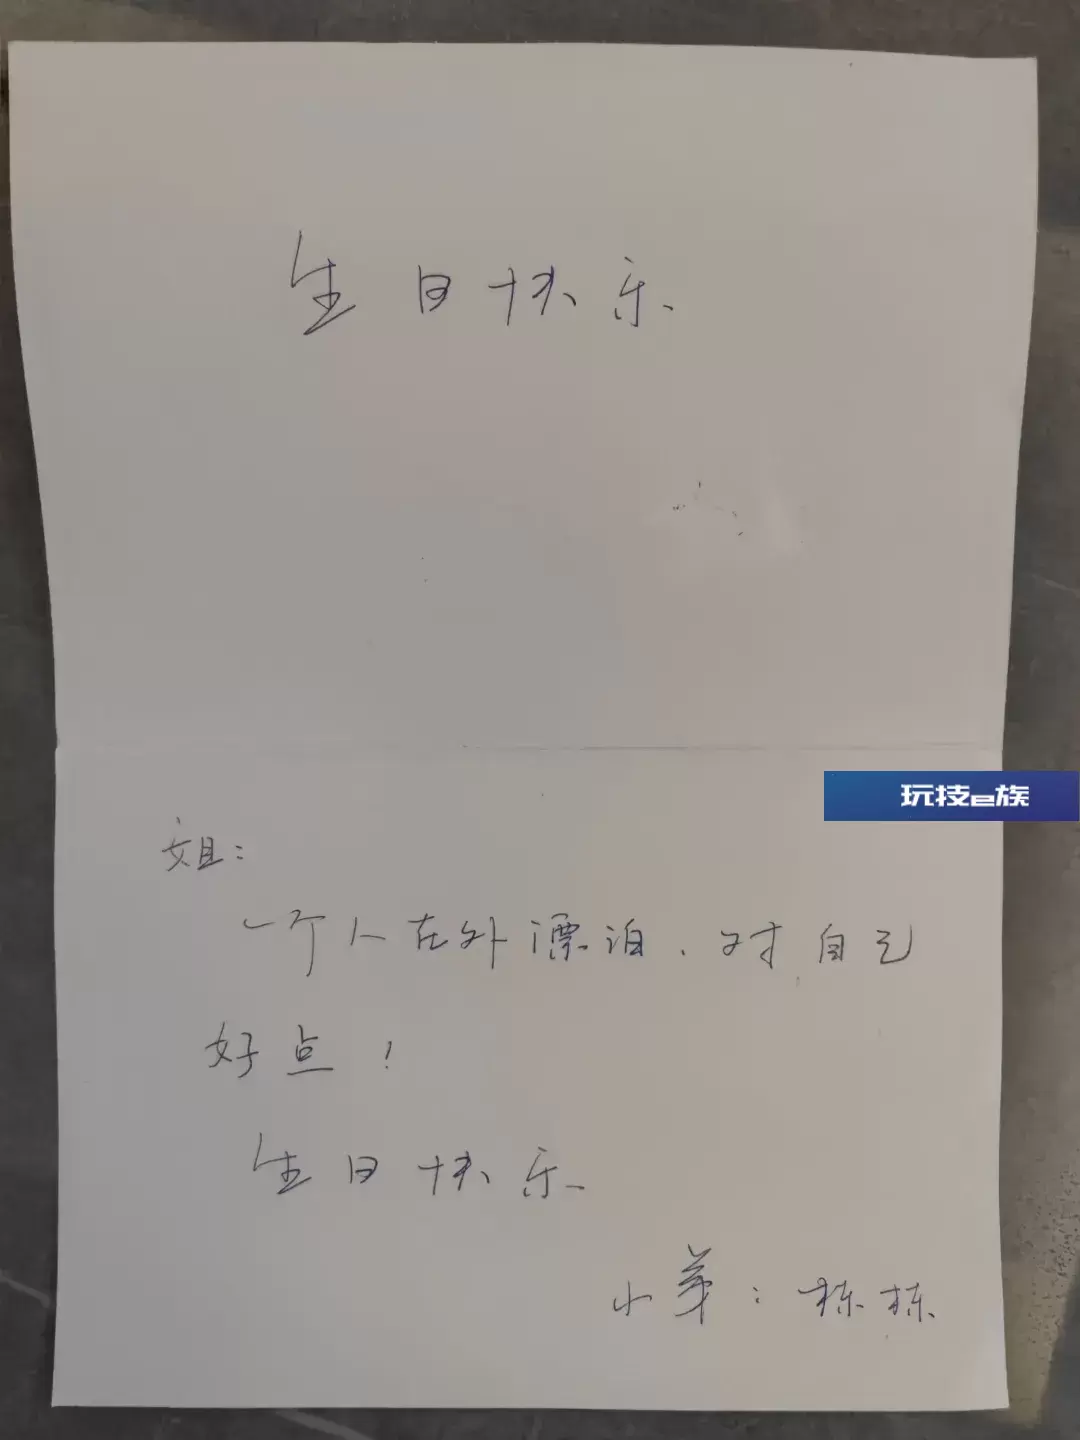 生日快乐
玩技e族
姐:
一个人在外漂泊、对自己
好点!
生日快乐
小弟:栋栋